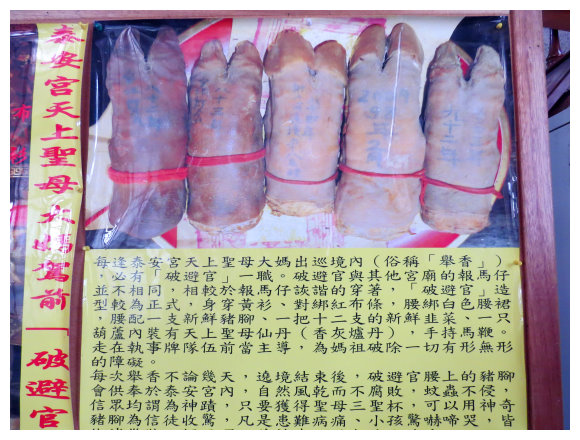 泰安宮天上聖母大媽駕前「破避官
九十二年
每逢泰安宮天上聖母大媽出巡境內（俗稱「舉香」）
，必有「破避官」一職。破避官與其他宮廟的報馬仔
並不相同，相較於報馬仔詼諧的穿著，「破避官」造
型較為正式，身穿黃衫、對綁紅布條，腰綁白色腰裙
，腰配一支新鮮豬腳、一把十二支的新鮮韭菜、一只
葫蘆內裝有天上聖母仙丹（香灰爐丹），手持馬鞭。
走在執事牌隊伍前當主導，為媽祖破除一切有形無形
的障礙。
每次舉香不論幾天，遶境結束後，破避官腰上的豬腳
會供奉於泰安宮內，自然風乾而不腐敗，蚊蟲不侵，
信眾均謂為神蹟，只要獲得聖母三聖杯，可以用神奇
豬腳為信徒收驚，凡是患難病痛、小孩驚嚇啼哭，皆